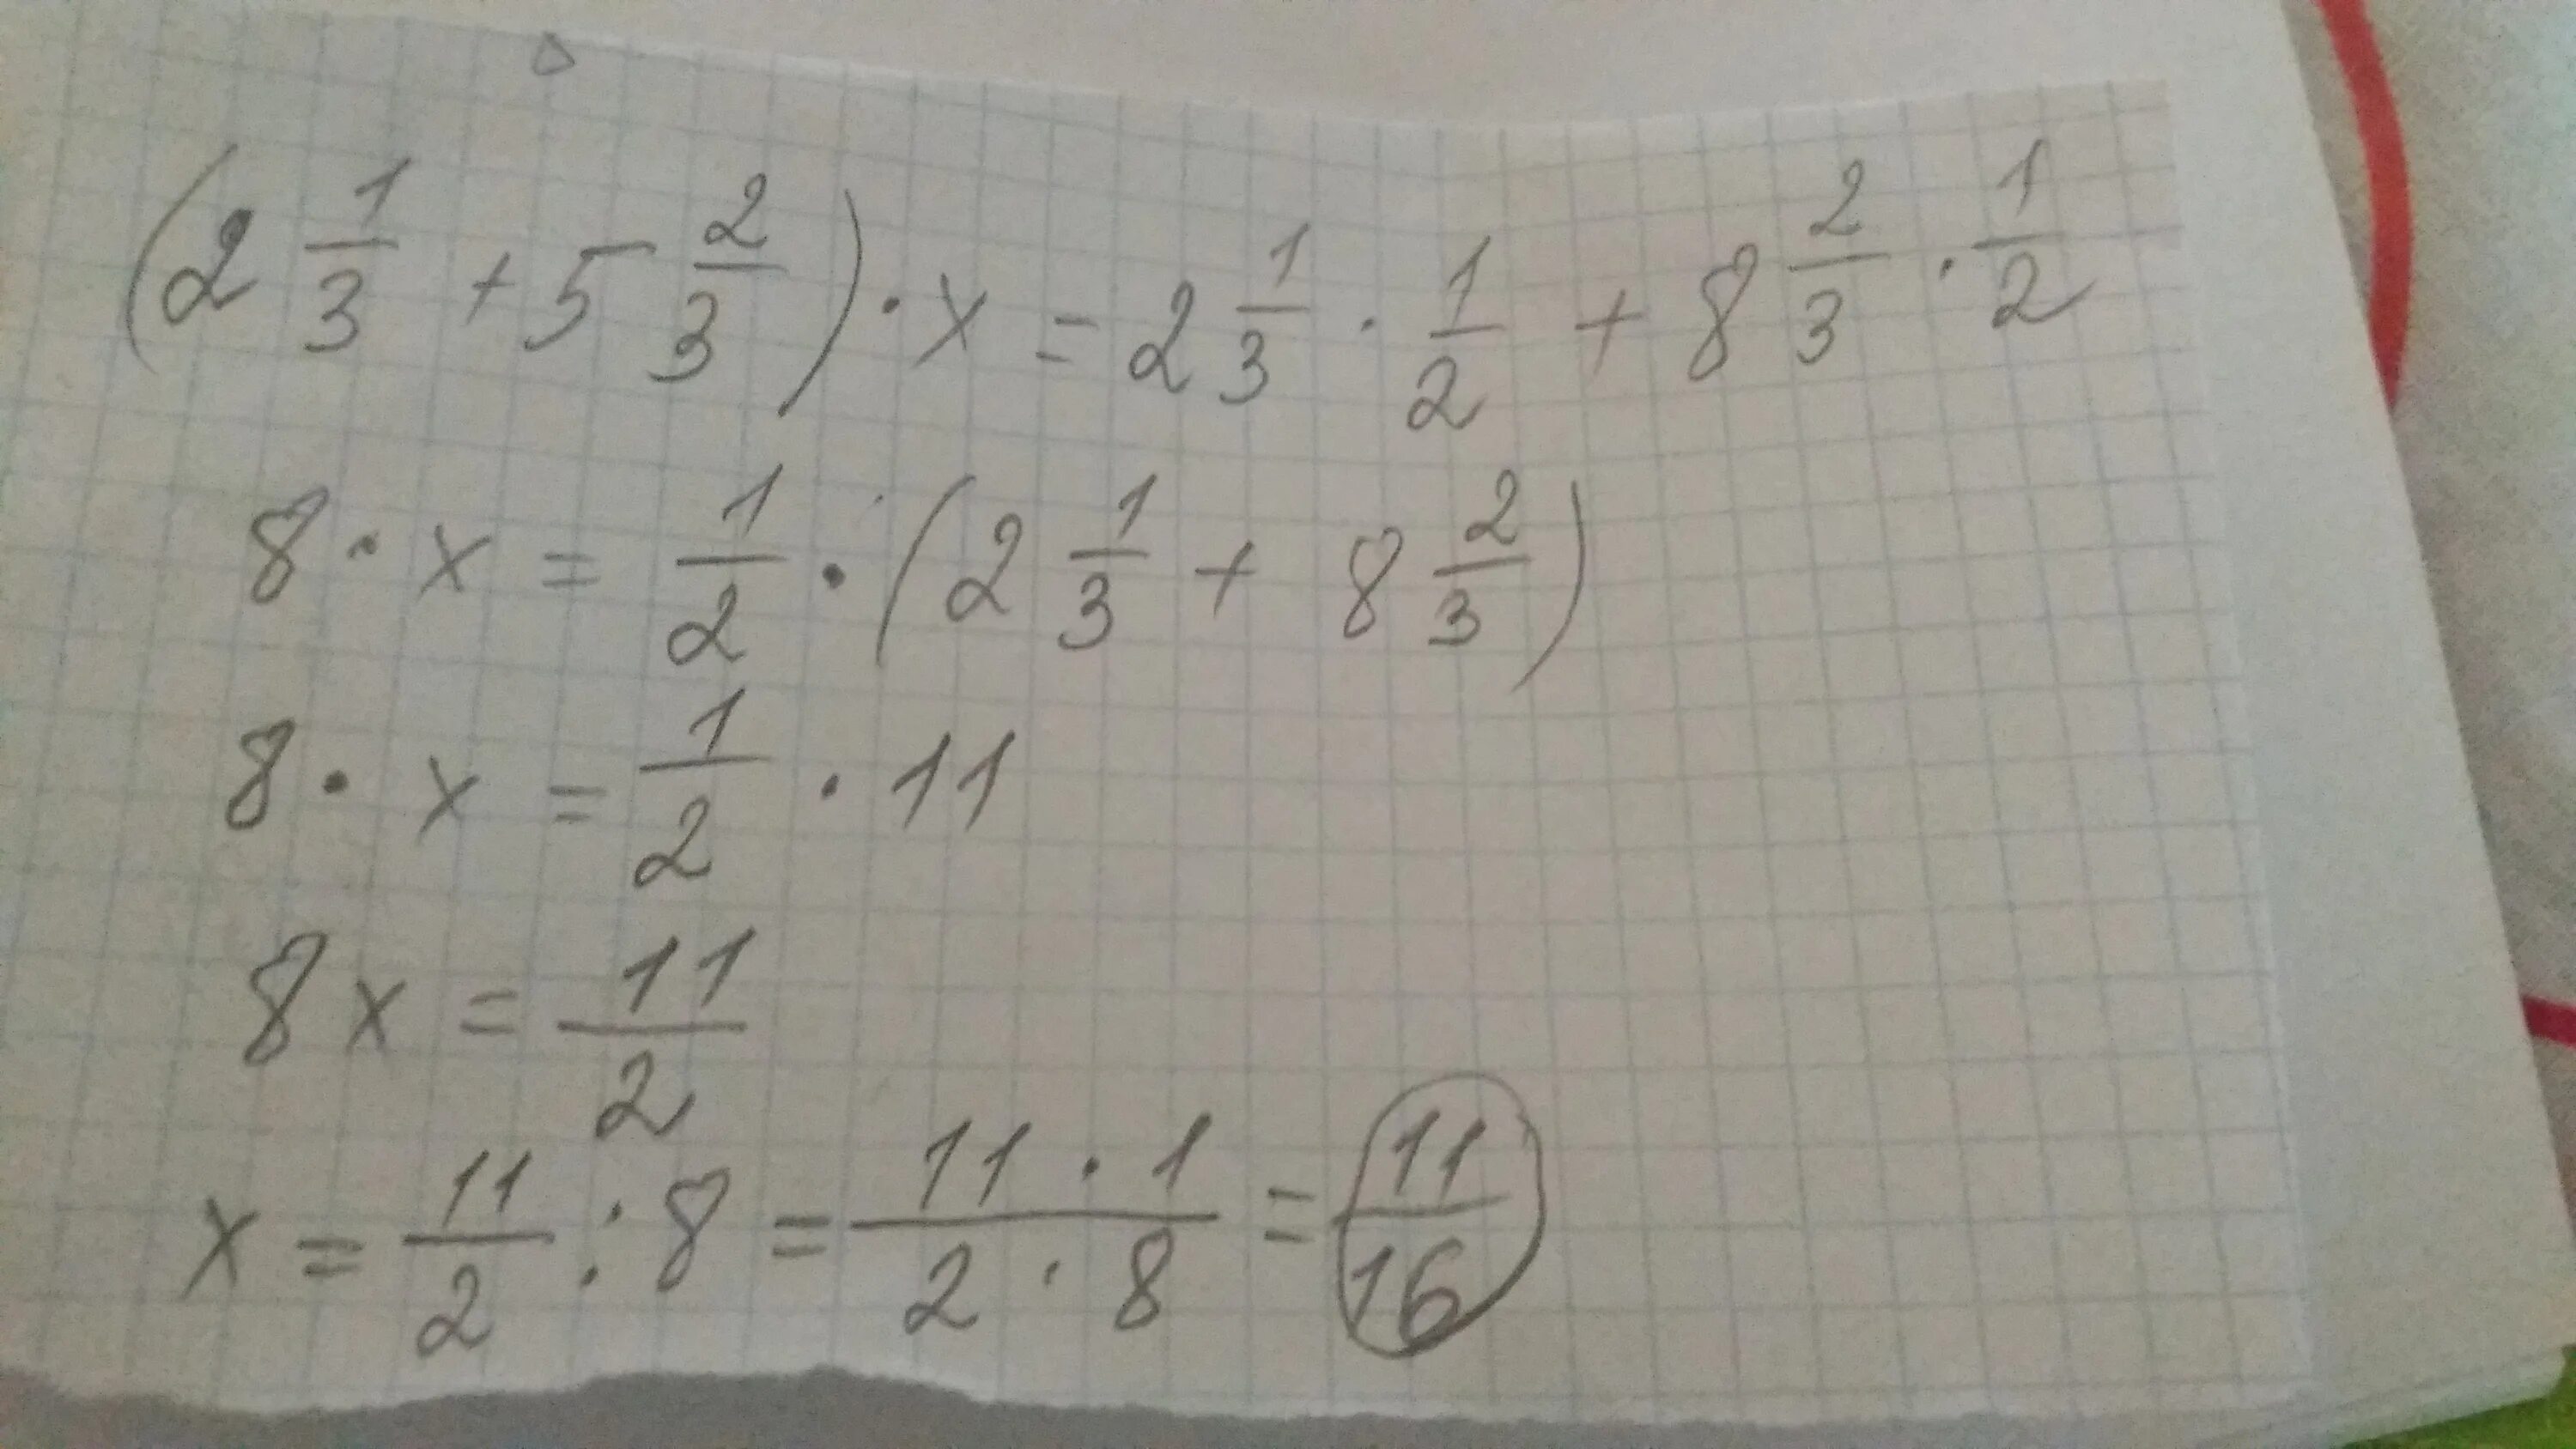 (2 1/3 + 5 2/3) · x = 2 1/3 · 1/2 + 8 2/3 · 1/2
8 · x = 1/2 · (2 1/3 + 8 2/3)
8 · x = 1/2 · 11
8x = 11/2
x = 11/2 : 8 = (11 · 1)/(2 · 8) = 11/16